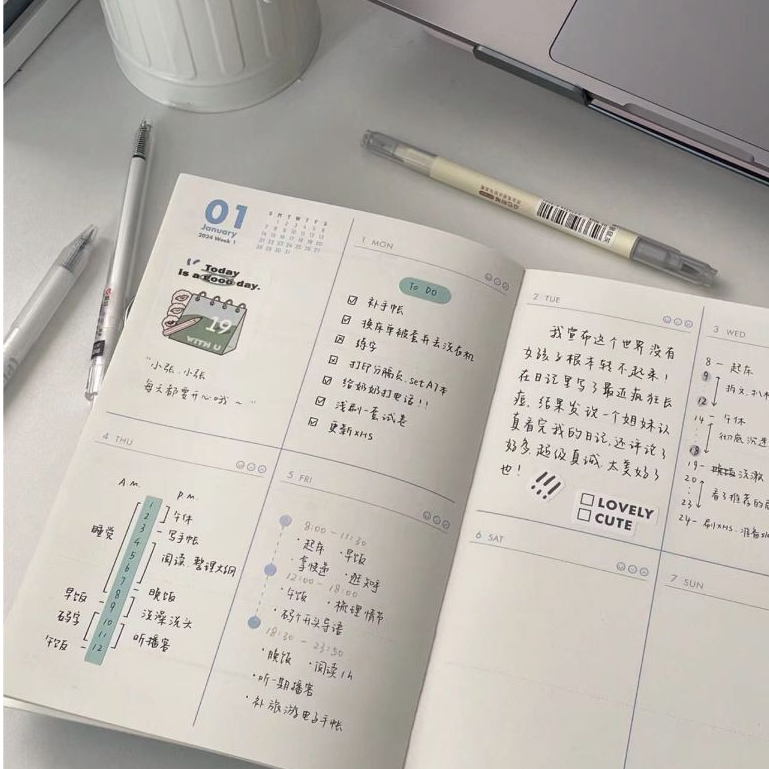 01
January
2024 Week 1
S M T W T F S
1 2 3 4 5 6
7 8 9 10 11 12 13
14 15 16 17 18 19 20
21 22 23 24 25 26 27
28 29 30 31
Today
is a good day.
19
WITH U
"小张.小张
每天都要开心哦~"
1 MON
To Do
补手帐
换床单被套再去洗衣机
练字
打印分隔页.set A7本
给奶奶打电话!!
浅刷一套试卷
更新XHS
2 TUE
我宣布这个世界没有
女孩子根本轻不起来!
在日记里写了最近疯狂长
痘.结果发现一个姐妹认
真看完我的日记.还评论了
好多.超级真诚.太美好了
也!
!!!
LOVELY
CUTE
3 WED
8 - 起床
9
12
14 - 午休
彻底沉迷
18
19 - 洗漱
20
看了推荐的
23
24 - 刷XHS.准备
4 THU
A.m. P.m.
1
2
3
4
5
6
7
8
9
10
11
12
睡觉
早饭
码字
午饭
午休
写手帐
阅读.整理大纲
晚饭
洗澡洗头
听播客
5 FRI
8:00 - 11:30
·起床 ·早饭
·拿快递 ·逛知乎
12:00 - 18:00
·午饭 ·梳理情节
·码个开头导语
18:30 - 23:30
·晚饭 ·阅读1h
·听一期播客
·补旅游电子手帐
6 SAT
7 SUN